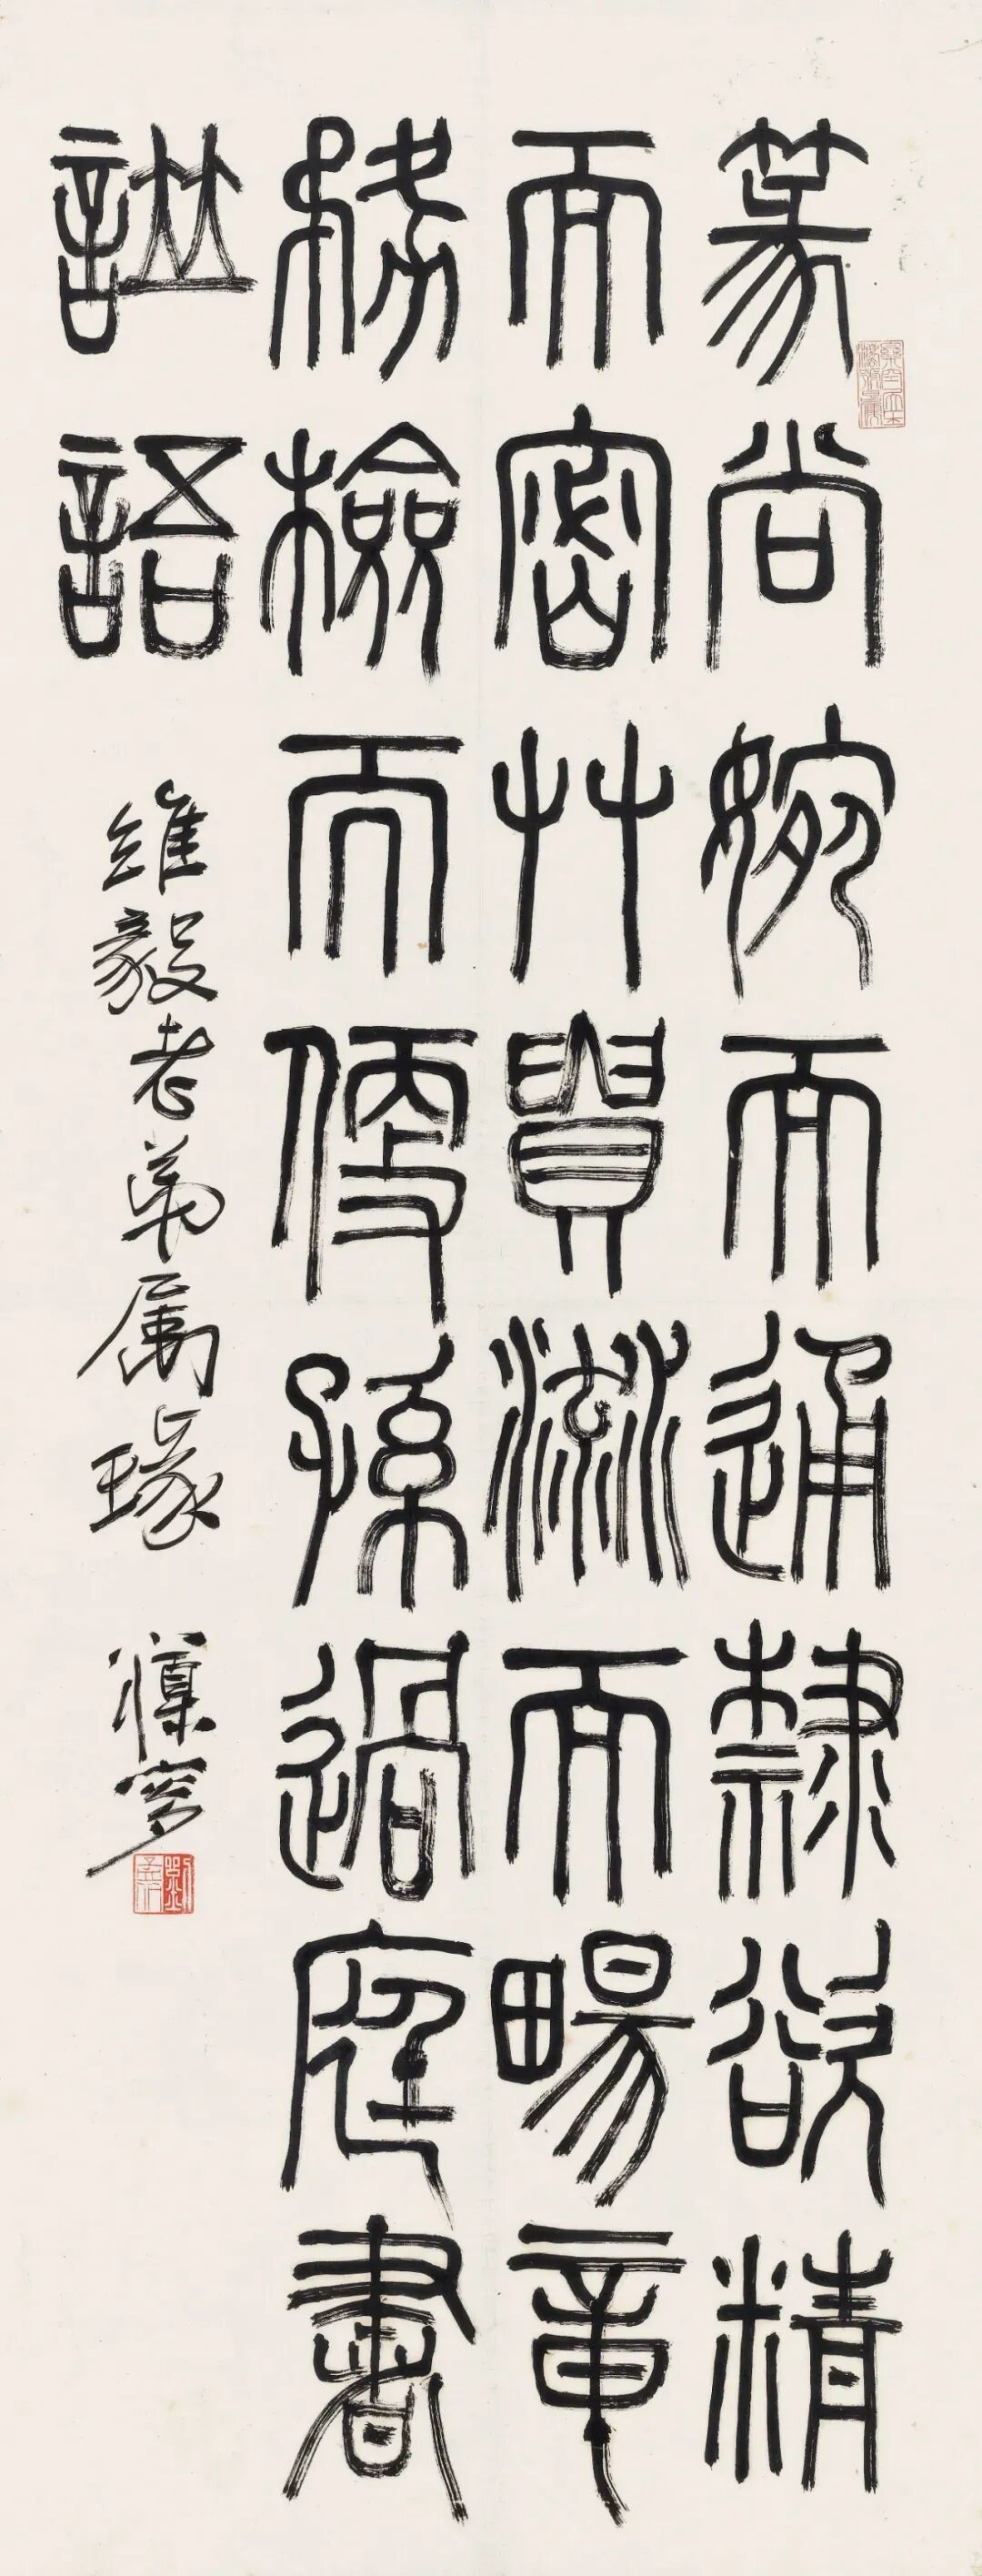 篆尚婉而通隸欲精
而密艸貴流而暢章
務檢而便孫過庭書
譜語
維毅老弟属瑑